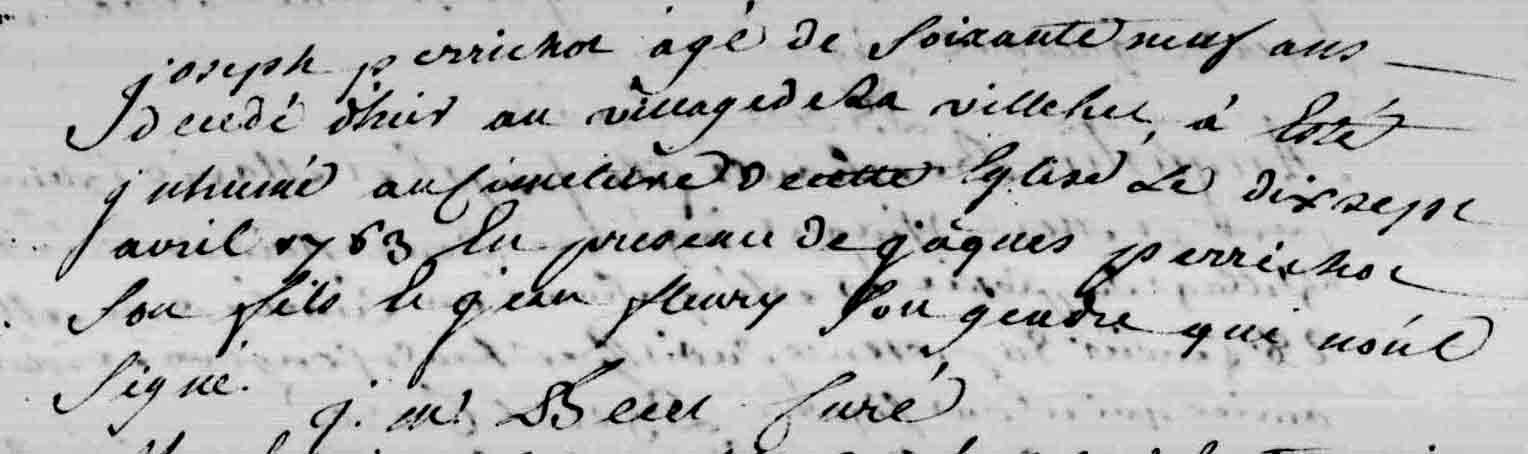 joseph perrichot âgé de soixante neuf ans
decedé d'hier au village de la villehu, à esté
jnhumé au Cimetiére de cette Eglise Le dix sept
avril 1763 En presence de jâques perrichot
son fils Et jean fleury son gendre qui nónt
signé.
j. m. Curé